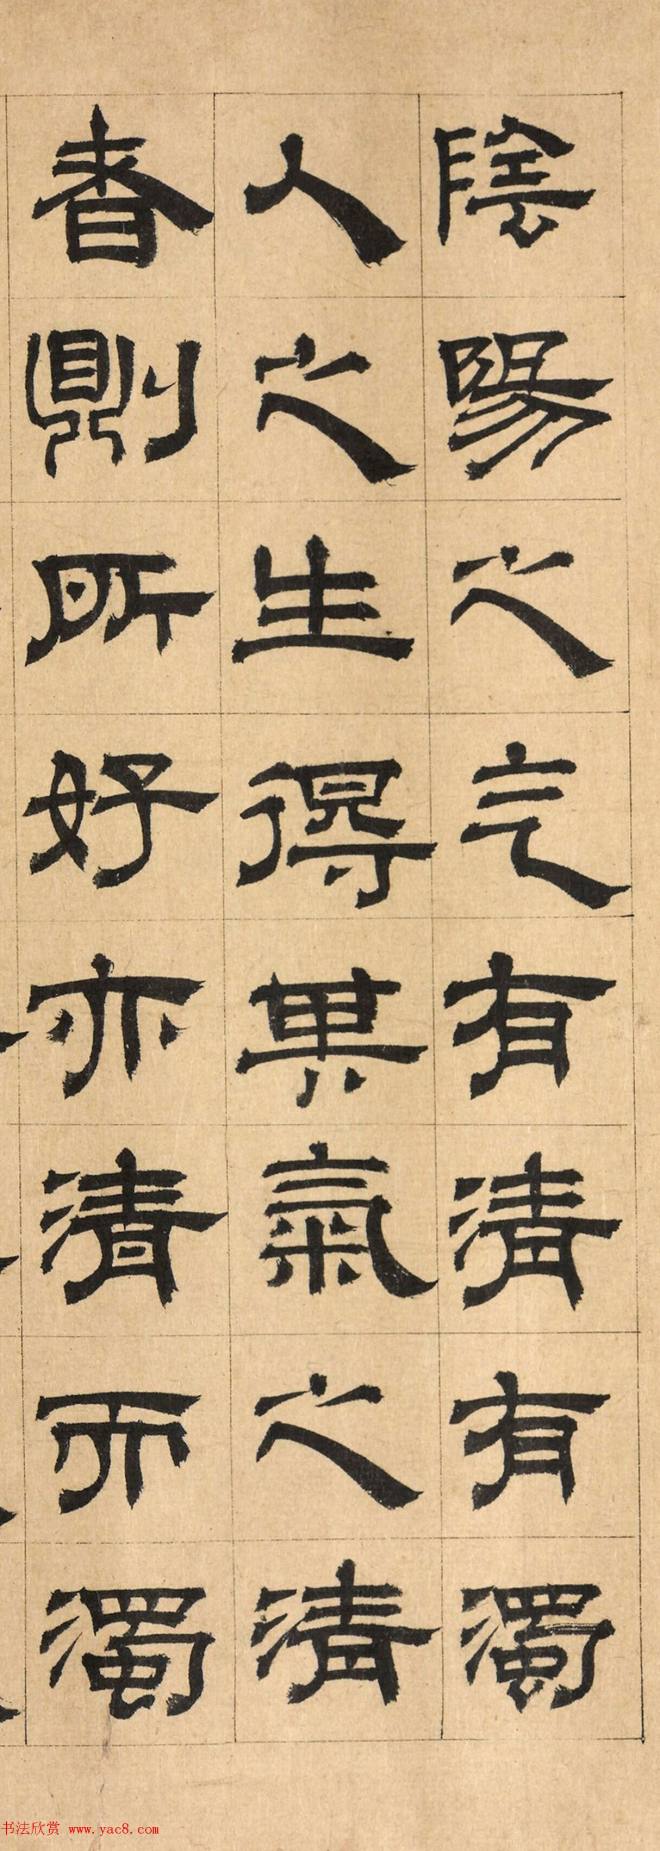 陰陽之气有清有濁
人之生得其氣之清
者則所好亦清而濁
书法欣赏 www.yac8.com